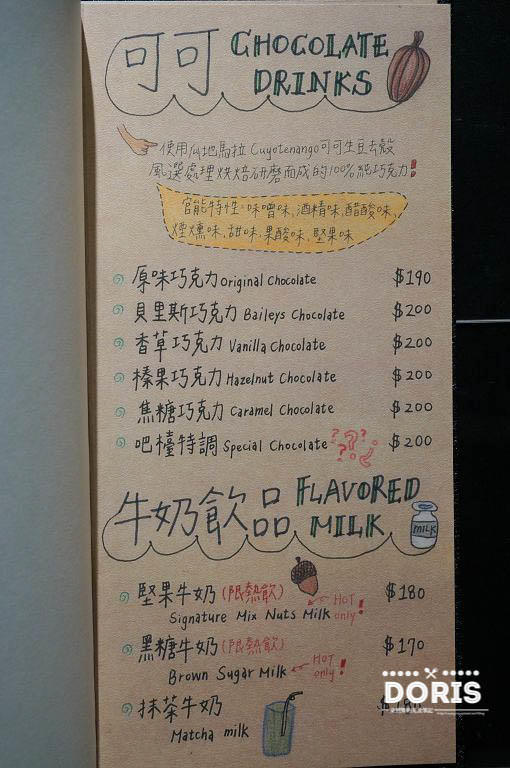 可可 CHOCOLATE DRINKS
使用瓜地馬拉 Cuyotenango可可生豆去殼
風選處理烘焙研磨而成的100%純巧克力!
官能特性:味噌味,酒精味,醋酸味,
煙燻味,甜味,果酸味,堅果味
原味巧克力 Original Chocolate $190
貝里斯巧克力 Baileys Chocolate $200
香草巧克力 Vanilla Chocolate $200
榛果巧克力 Hazelnut Chocolate $200
焦糖巧克力 Caramel Chocolate $200
吧檯特調 Special Chocolate ??? $200
牛奶飲品 FLAVORED MILK
MILK
堅果牛奶 (限熱飲) $180
Signature Mix Nuts Milk HOT only!
黑糖牛奶 (限熱飲) $170
Brown Sugar Milk HOT only!
抹茶牛奶 $
Matcha milk
DORIS